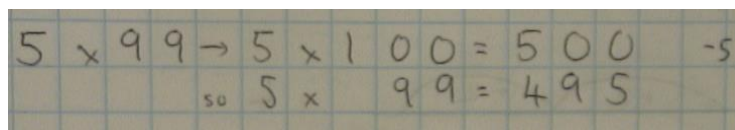 5 x 99 → 5 x 100 = 500 -5
so 5 x 99 = 495